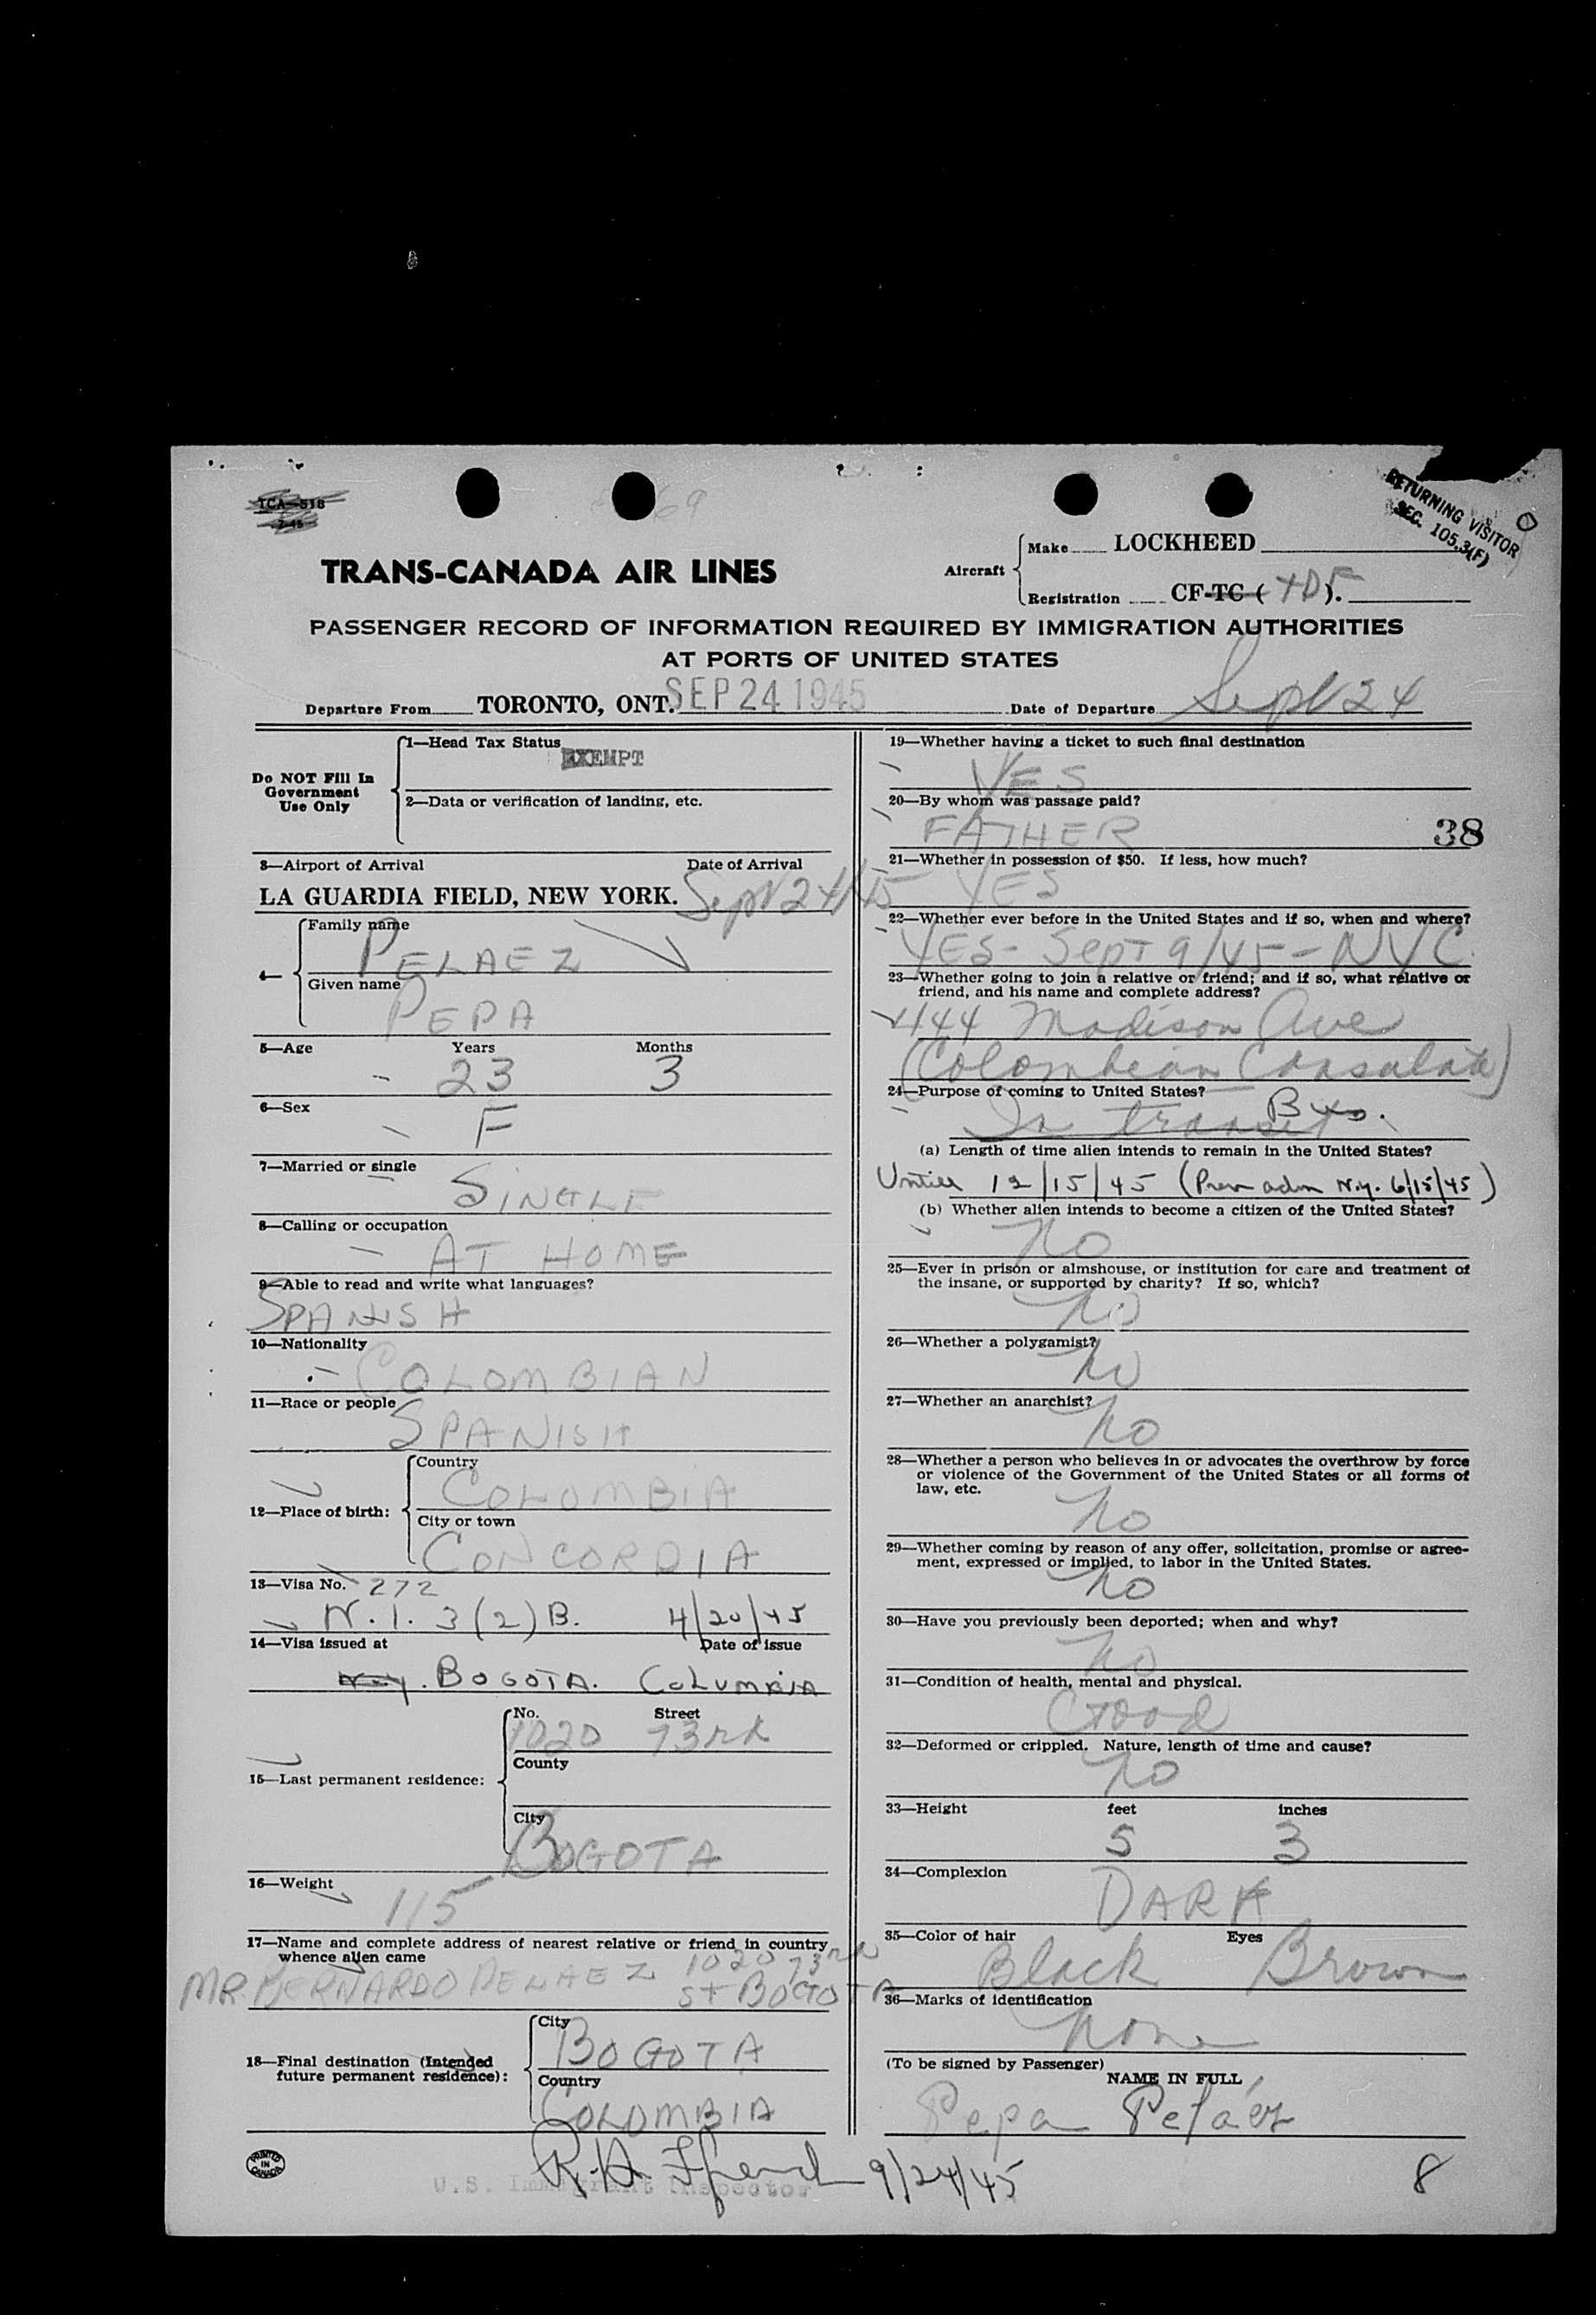 TCA—518
7-45
69
RETURNING VISITOR
SEC. 105.3(F)
TRANS-CANADA AIR LINES
Aircraft
Make LOCKHEED
Registration CF-TC ( TDF ).
PASSENGER RECORD OF INFORMATION REQUIRED BY IMMIGRATION AUTHORITIES
AT PORTS OF UNITED STATES
Departure From TORONTO, ONT. SEP 24 1945 Date of Departure Sept 24
Do NOT Fill In
Government
Use Only
1—Head Tax Status
EXEMPT
2—Data or verification of landing, etc.
3—Airport of Arrival Date of Arrival
LA GUARDIA FIELD, NEW YORK. Sept 24/45
4—
Family name
PELAEZ
Given name
PEPA
5—Age Years Months
23 3
6—Sex
F
7—Married or single
SINGLE
8—Calling or occupation
AT HOME
9—Able to read and write what languages?
SPANISH
10—Nationality
COLOMBIAN
11—Race or people
SPANISH
12—Place of birth:
Country
COLOMBIA
City or town
CONCORDIA
13—Visa No. 272
N.I. 3 (2) B. 4/20/45
14—Visa issued at Date of issue
N.Y. BOGOTA. COLUMBIA
15—Last permanent residence:
No. Street
1020 73rd
County
City
BOGOTA
16—Weight
115
17—Name and complete address of nearest relative or friend in country
whence alien came
1020 73rd
MR. BERNARDO PELAEZ St BOGOTA
18—Final destination (Intended
future permanent residence):
City
BOGOTA
Country
COLOMBIA
19—Whether having a ticket to such final destination
YES
20—By whom was passage paid?
FATHER
38
21—Whether in possession of $50. If less, how much?
YES
22—Whether ever before in the United States and if so, when and where?
YES - Sept 9/45 - NYC
23—Whether going to join a relative or friend; and if so, what relative or
friend, and his name and complete address?
444 Madison Ave
(Colombian Consulate)
24—Purpose of coming to United States?
In transit
(a) Length of time alien intends to remain in the United States?
Until 12/15/45 (Prev adm N.Y. 6/15/45)
(b) Whether alien intends to become a citizen of the United States?
No
25—Ever in prison or almshouse, or institution for care and treatment of
the insane, or supported by charity? If so, which?
No
26—Whether a polygamist?
No
27—Whether an anarchist?
No
28—Whether a person who believes in or advocates the overthrow by force
or violence of the Government of the United States or all forms of
law, etc.
No
29—Whether coming by reason of any offer, solicitation, promise or agree-
ment, expressed or implied, to labor in the United States.
No
30—Have you previously been deported; when and why?
No
31—Condition of health, mental and physical.
Good
32—Deformed or crippled. Nature, length of time and cause?
No
33—Height feet inches
5 3
34—Complexion
DARK
35—Color of hair Eyes
Black Brown
36—Marks of identification
None
(To be signed by Passenger)
NAME IN FULL
Pepa Peláez
PRINTED
IN
CANADA
U.S. Immigrant Inspector
9/24/45
8